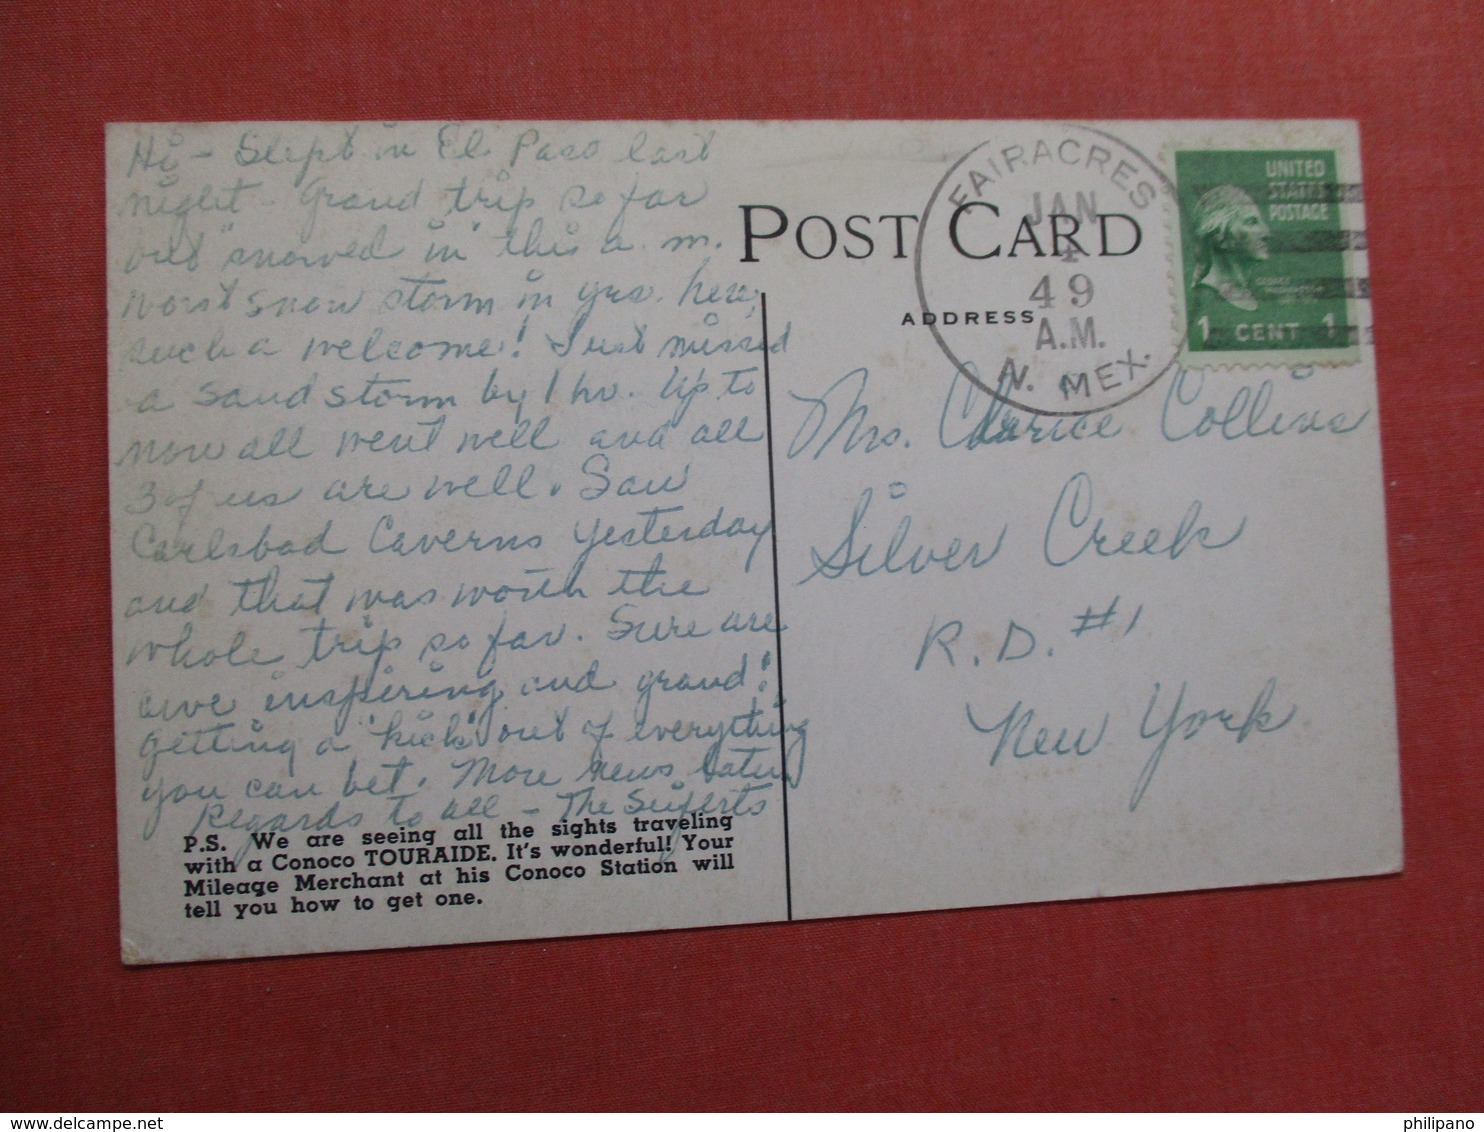 Hi - Slept in El Paso last
night - Grand trip so far
out "snowed in" this a.m.
worst snow storm in yrs. here,
such a welcome! Just missed
a sand storm by 1 hr. Up to
now all went well and all
3 of us are well. Saw
Carlsbad Caverns Yesterday
and that was worth the
whole trip so far. Sure are
awe inspiring and grand!
getting a "kick" out of everything
you can bet. More news later
Regards to all - The Seiferts
P.S. We are seeing all the sights traveling
with a Conoco TOURAIDE. It's wonderful! Your
Mileage Merchant at his Conoco Station will
tell you how to get one.
POST CARD
ADDRESS
FAIRACRES
JAN
4
49
A.M.
N. MEX.
UNITED
STATES
POSTAGE
1 CENT 1
Mrs. Clarice Collins
Silver Creek
R.D. #1
New York
delcampe.net
philipano